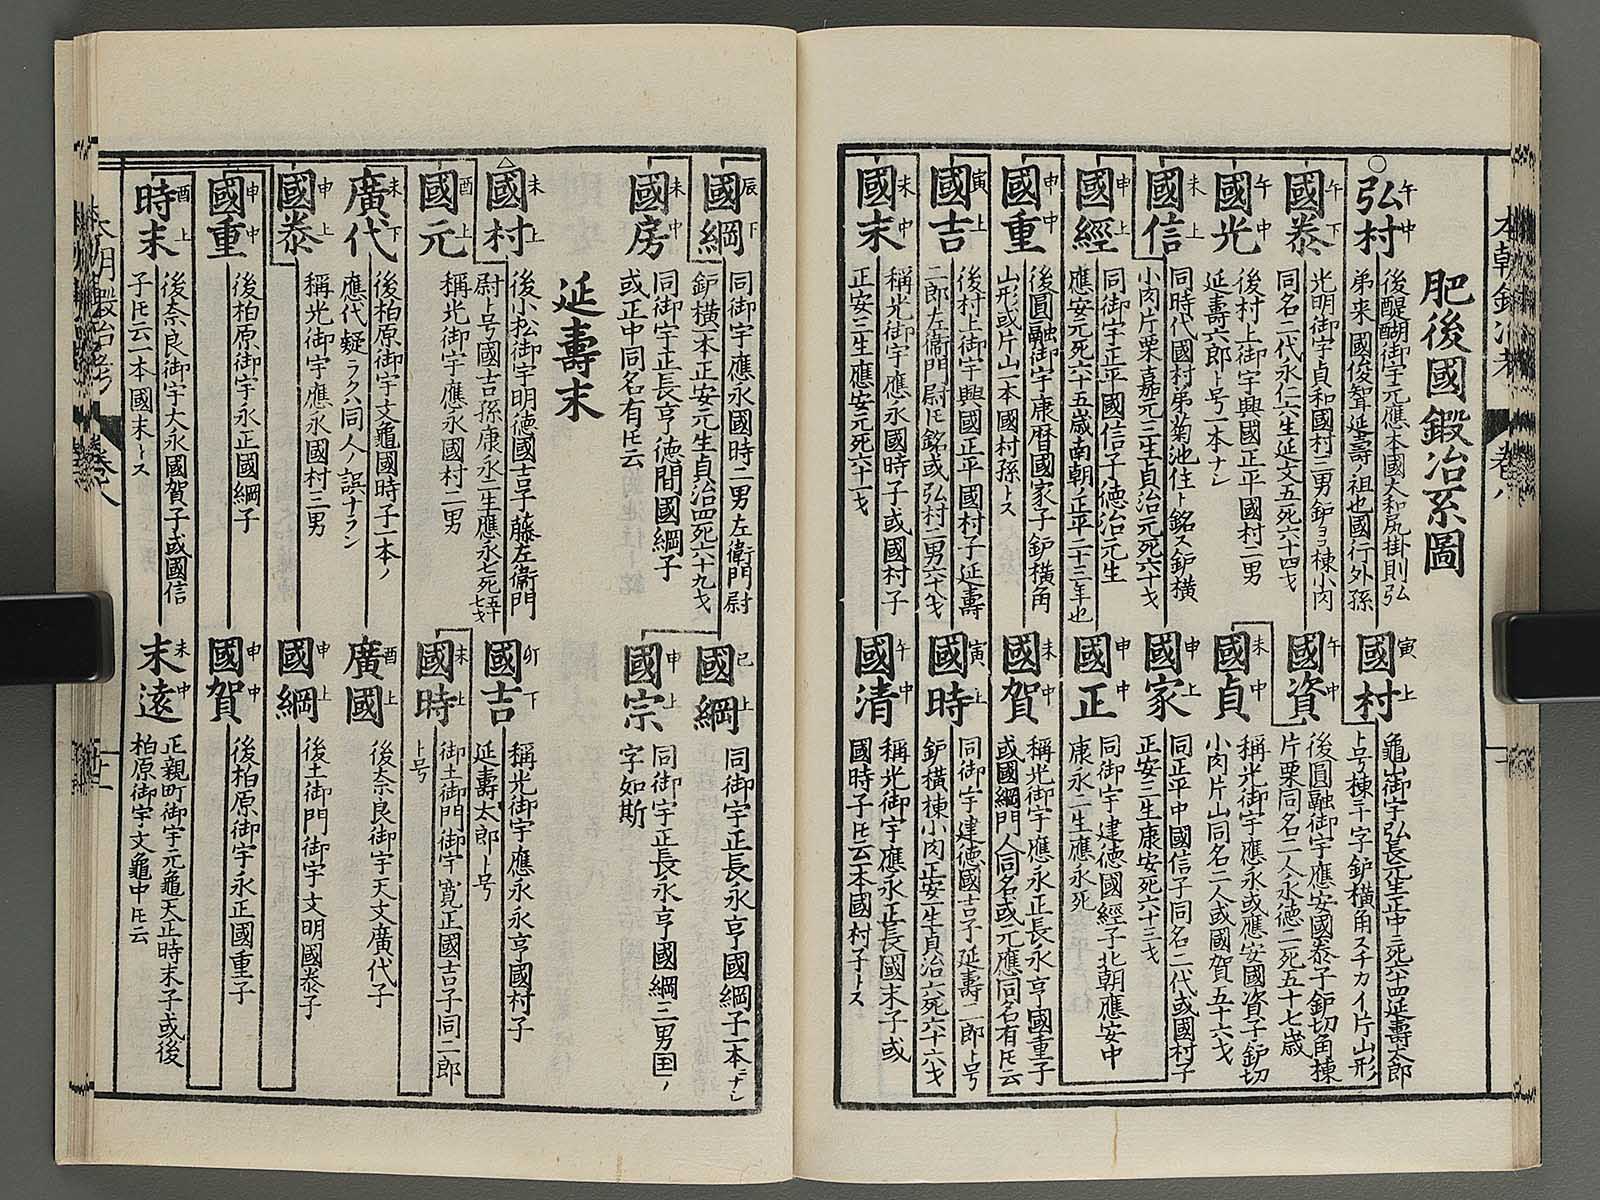 本朝鍛冶考 卷八
肥後國鍛冶系圖
弘村 午中
後醍醐御宇元應本國大和尻掛則弘
弟来國俊聟延壽ノ祖也國行外孫
國村 寅上
龜山御宇弘長元生正中三死六十四延壽太郎
ト号棟三字鈩横角スチカイ片山形
國泰 午下
光明御宇貞和國村三男鈩ヨコ棟小肉
同名二代永仁六生延文五死六十四才
國資 午中
後圓融御宇應安國泰子鈩切角棟
片栗同名二人永德二死五十七歳
國光 午中
後村上御宇興國正平國村二男
延壽六郎ト号一本ナシ
國貞 未中
稱光御宇應永或應安國資子鈩切
小肉片山同名二人或國賀五十六才
國信 未上
同時代國村弟菊池住ト銘ス鈩横
小肉片栗嘉元三生貞治元死六十才
國家 申上
同正平中國信子同名二代或國村子
正安三生康安死六十三才
國經 申上
同御宇正平國信子德治元生
應安元死六十五歳南朝ノ正平二十三年也
國正 申中
同御宇建德國經子北朝應安中
康永二生應永死
國重 申中
後圓融御宇康暦國家子鈩横角
山形或片山一本國村孫トス
國賀 未中
稱光御宇應永正長永亨國重子
或國綱門人同名或元應同名有氏云
國吉 寅上
後村上御宇興國正平國村子延壽
二郎左衞門尉氏銘或弘村二男六十八才
國時 寅上
同御宇建德國吉子延壽二郎ト号
鈩横棟小肉正安二生貞治六死六十六才
國末 未中
稱光御宇應永國時子或國村子
正安三生應安元死六十一才
國清 午中
稱光御宇應永正長國末子或
國時子氏云一本國村子トス
國綱 辰下
同御宇應永國時二男左衞門尉
鈩横一本正安元生貞治四死六十九才
國綱 巳上
同御宇正長永亨國綱子一本ニナシ
國房 未中
同御宇正長亨德間國綱子
或正中同名有氏云
國宗 申上
同御宇正長永亨國綱三男国ノ
字如斯
延壽末
國村 未上
後小松御宇明德國吉子藤左衞門
尉ト号國吉孫康永二生應永七死五十七才
國吉 卯下
稱光御宇應永永亨國村子
延壽太郎ト号
國元 酉上
稱光御宇應永國村二男
國時 未上
御土御門御宇寛正國吉子同二郎
ト号
廣代 未下
後柏原御宇文龜國時子一本ノ
應代疑ラクハ同人ノ誤ナラン
廣國 酉上
後奈良御宇天文廣代子
國泰 申上
稱光御宇應永國村三男
國綱 申上
後土御門御宇文明國泰子
國重 申中
後柏原御宇永正國綱子
國賀 申中
後柏原御宇永正國重子
時末 酉上
後奈良御宇大永國賀子或國信
子氏云一本國末トス
末遠 未中
正親町御宇元龜天正時末子或後
柏原御宇文龜中氏云
本朝鍛冶考 卷八